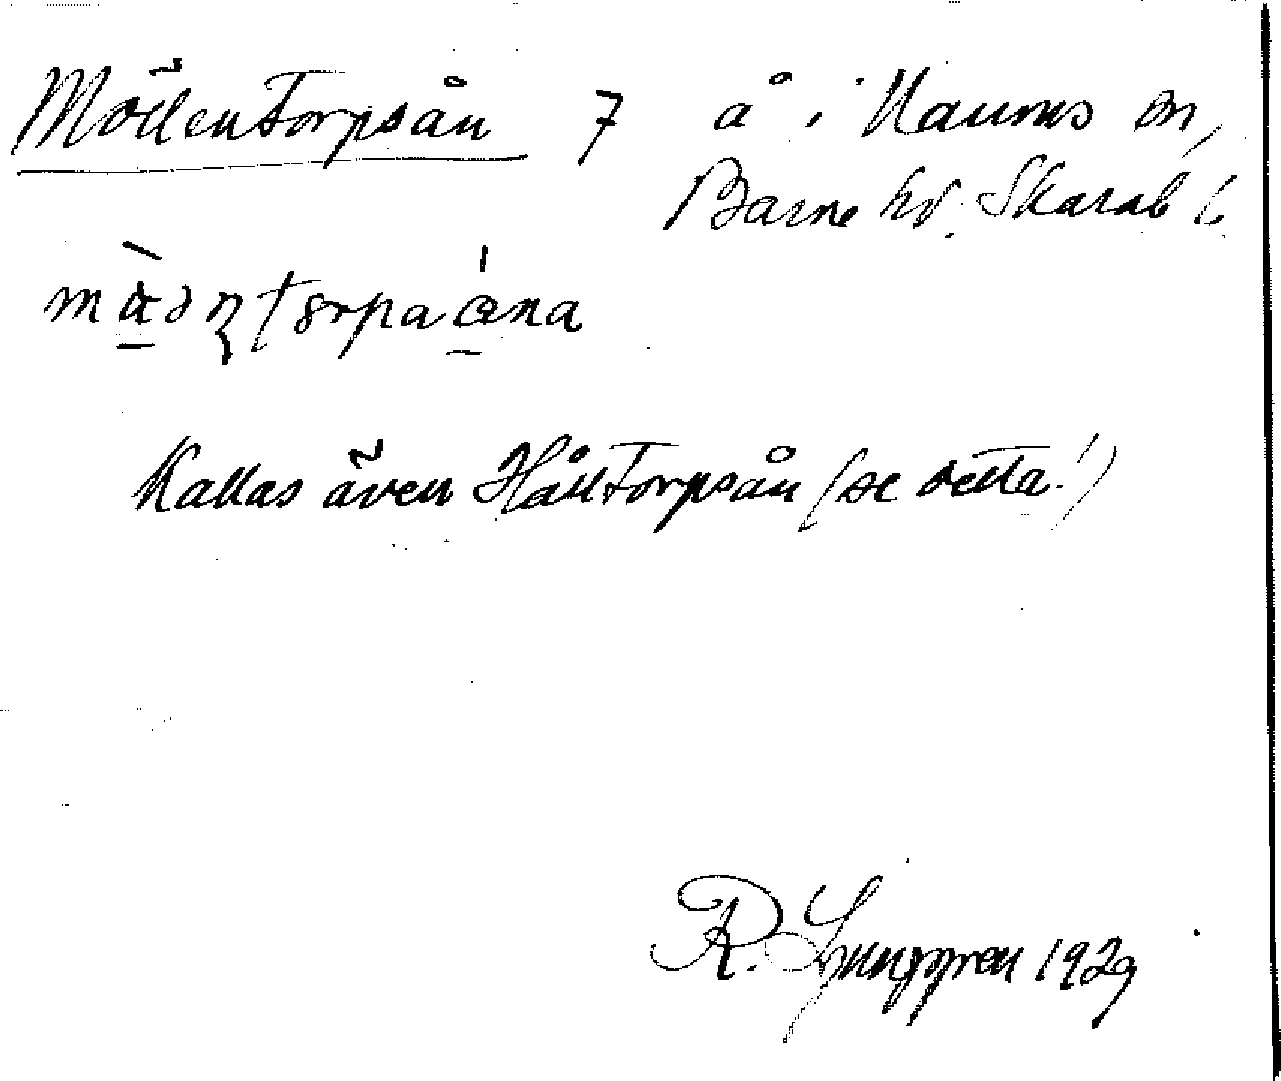 Möllentorpsån 7 å i Naums sn,
Barne hd. Skarab l.
Kallas även Håltorpsån (se detta!)
R. Ljunggren 1929